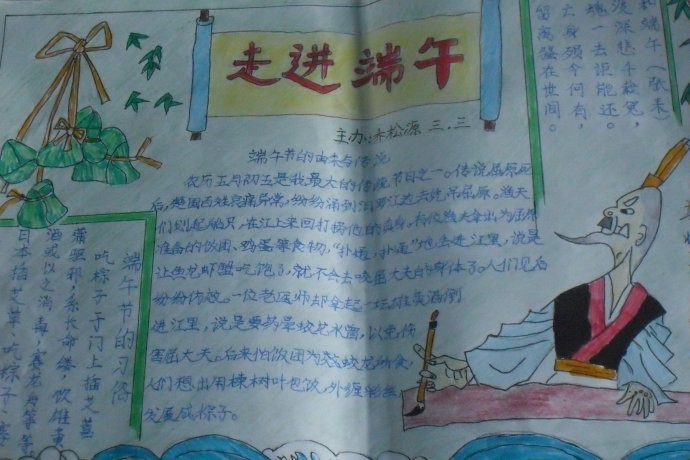 走进端午
主办:松源 三.三
端午节的由来与传说
农历五月初五是我最大的传统节日之一。传说屈原死
后,楚国百姓哀痛异常,纷纷涌到汨罗江边去凭吊屈原。渔夫
们划起船只,在江上来回打捞他的真身。有位渔夫拿出为屈原
准备的饭团、鸡蛋等食物,“扑通、扑通”地丢进江里,说是
让鱼龙虾蟹吃饱了,就不会去咬屈大夫的身体了。人们见后
纷纷仿效。一位老医师却拿起一坛雄黄酒倒
进江里,说是要药晕蛟龙水兽,以免伤
害屈大夫。后来怕饭团为蛟龙所食,
人们想出用楝树叶包饭,外缠彩丝
发展成粽子。
端午节的习俗
吃粽子于门上插艾菖
蒲驱邪,系长命缕,饮雄黄
酒或以之消毒,赛龙舟等等。
日本插艾草、吃粽子、赛
和端午(张耒)
渡深悲千载冤,
魂一去讵能还。
亡身殒今何有,
留离骚在世间。